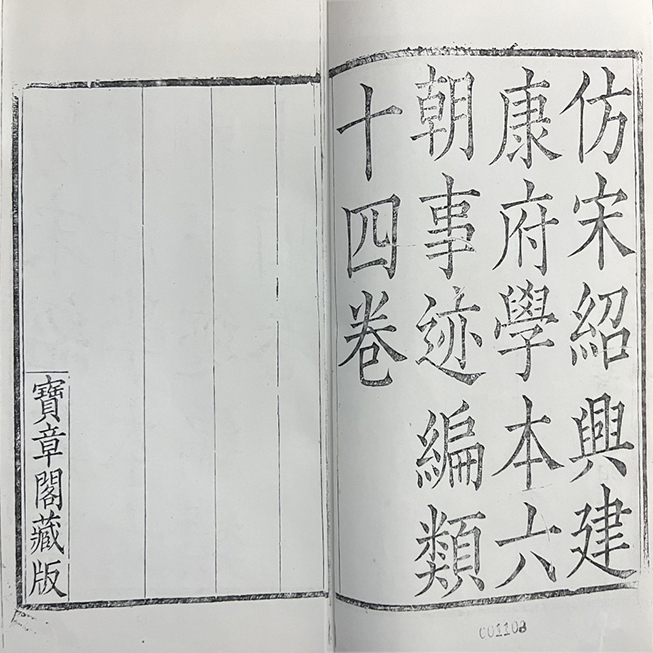 仿宋紹興建
康府學本六
朝事迹編類
十四卷
寶章閣藏版
CO1108